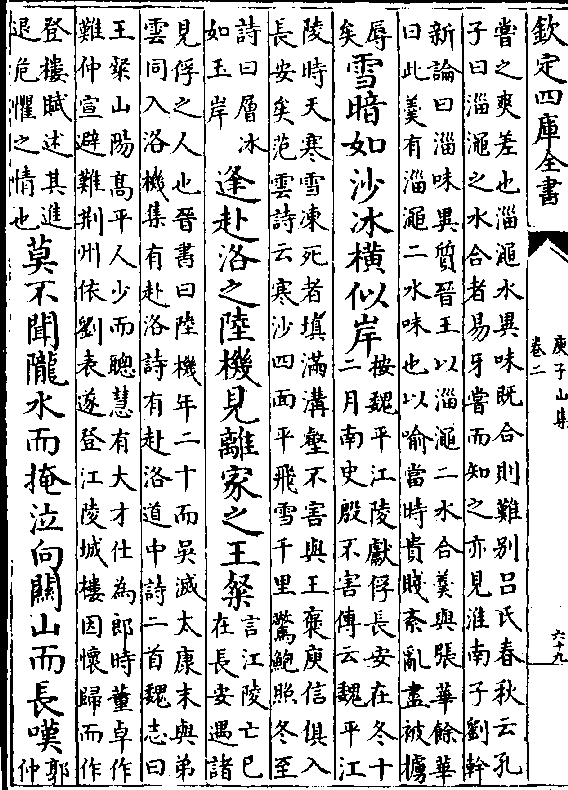 欽定四庫全書
庾子山集
卷二
六十九
嘗之爽差也淄澠水異味既合則難别吕氏春秋云孔
子曰淄澠之水合者易牙嘗而知之亦見淮南子劉幹
新論曰淄味異質晉王以淄澠二水合羮與張華餘華
曰此羮有淄澠二水味也以喻當時貴賤紊亂盡被擄
辱
矣
雪暗如沙冰橫似岸
按魏平江陵獻俘長安在冬十
二月南史殷不害傳云魏平江
陵時天寒雪凍死者填滿溝壑不害與王襃庾信俱入
長安矣范雲詩云寒沙四面平飛雪千里驚鮑照冬至
詩曰層冰
如玉岸
逢赴洛之陸機見離家之王粲
言江陵亡已
在長安遇諸
見俘之人也晉書曰陸機年二十而吳滅太康末與弟
雲同入洛機集有赴洛詩有赴洛道中詩二首魏志曰
王粲山陽髙平人少而聰慧有大才仕為郎時董卓作
難仲宣避難荆州依劉表遂登江陵城樓因懷歸而作
登樓賦述其進
退危懼之情也
莫不聞隴水而掩泣向關山而長嘆
郭
仲